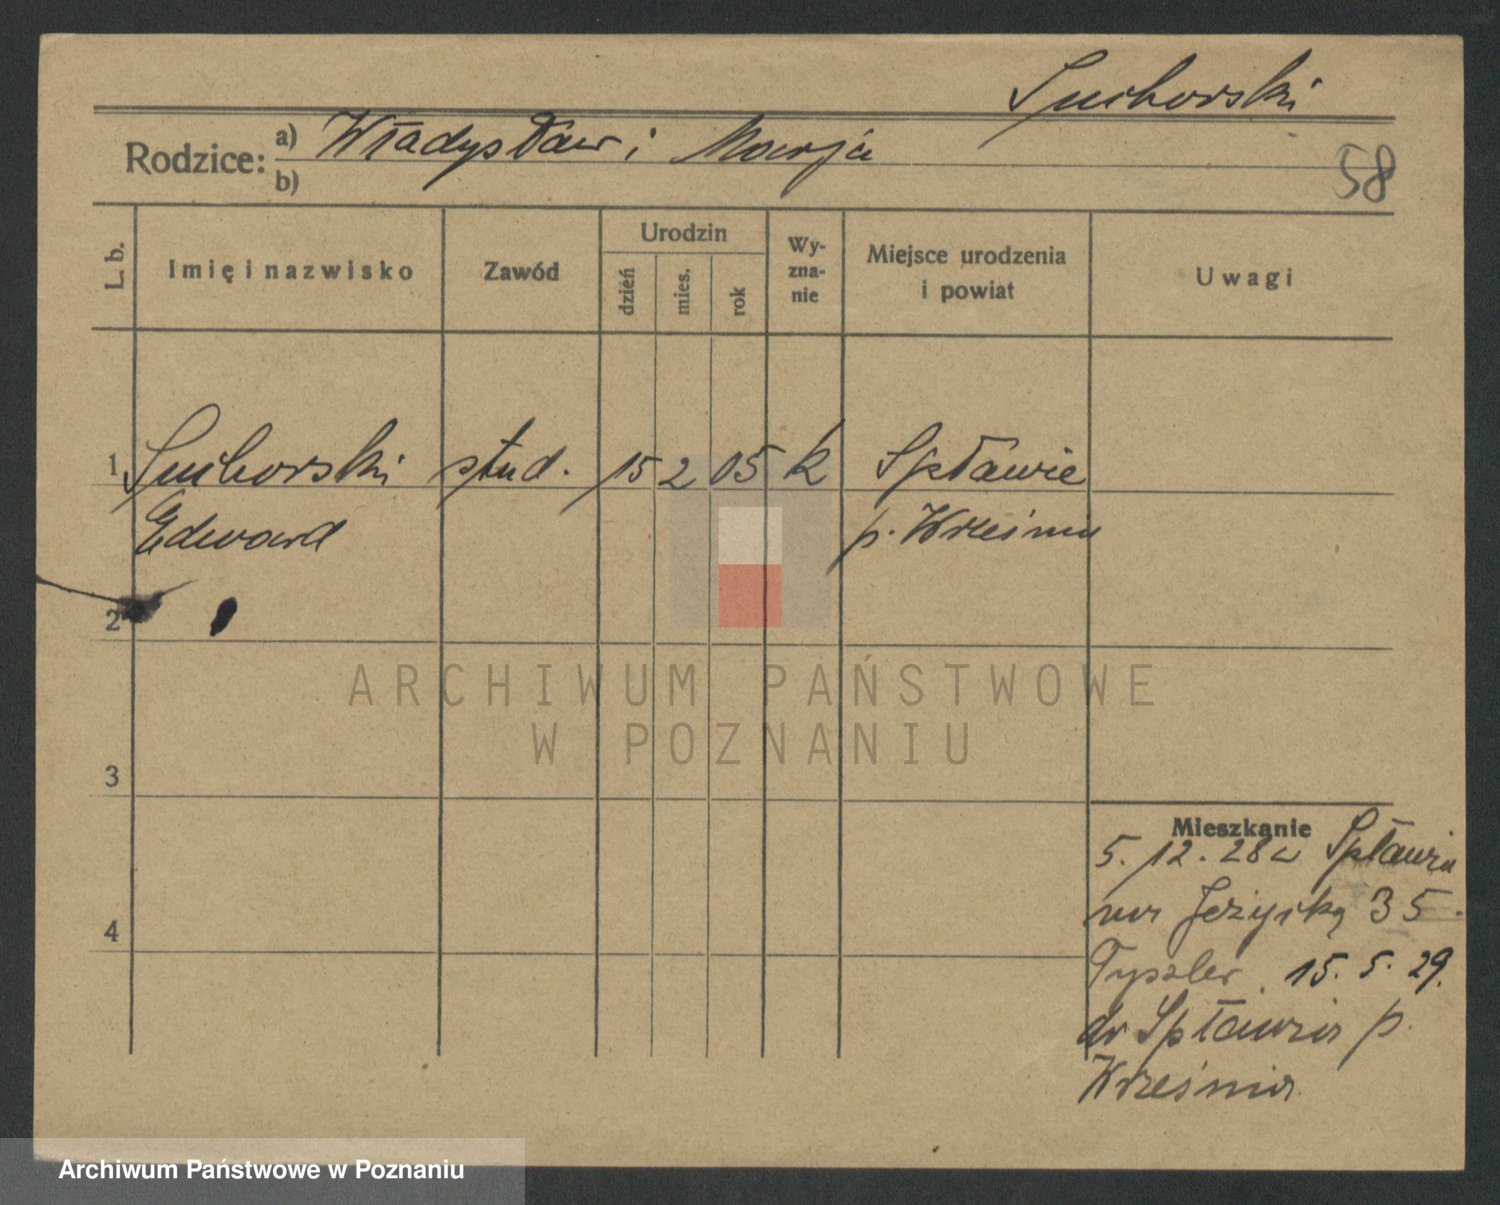 Suchorski
Rodzice: a) Władysław i Marja
b)
58
L. b.
Imię i nazwisko
Zawód
Urodzin
dzień
mies.
rok
Wy-
zna-
nie
Miejsce urodzenia
i powiat
Uwagi
1 Suchorski stud. 15 2 05 k Spławie
Edward p. Września
2
3
4
Mieszkanie
5. 12. 28 Spławia
na Jeżycką 35.
Tyszler. 15. 5. 29.
do Spławia p.
Września
ARCHIWUM PAŃSTWOWE
W POZNANIU
Archiwum Państwowe w Poznaniu